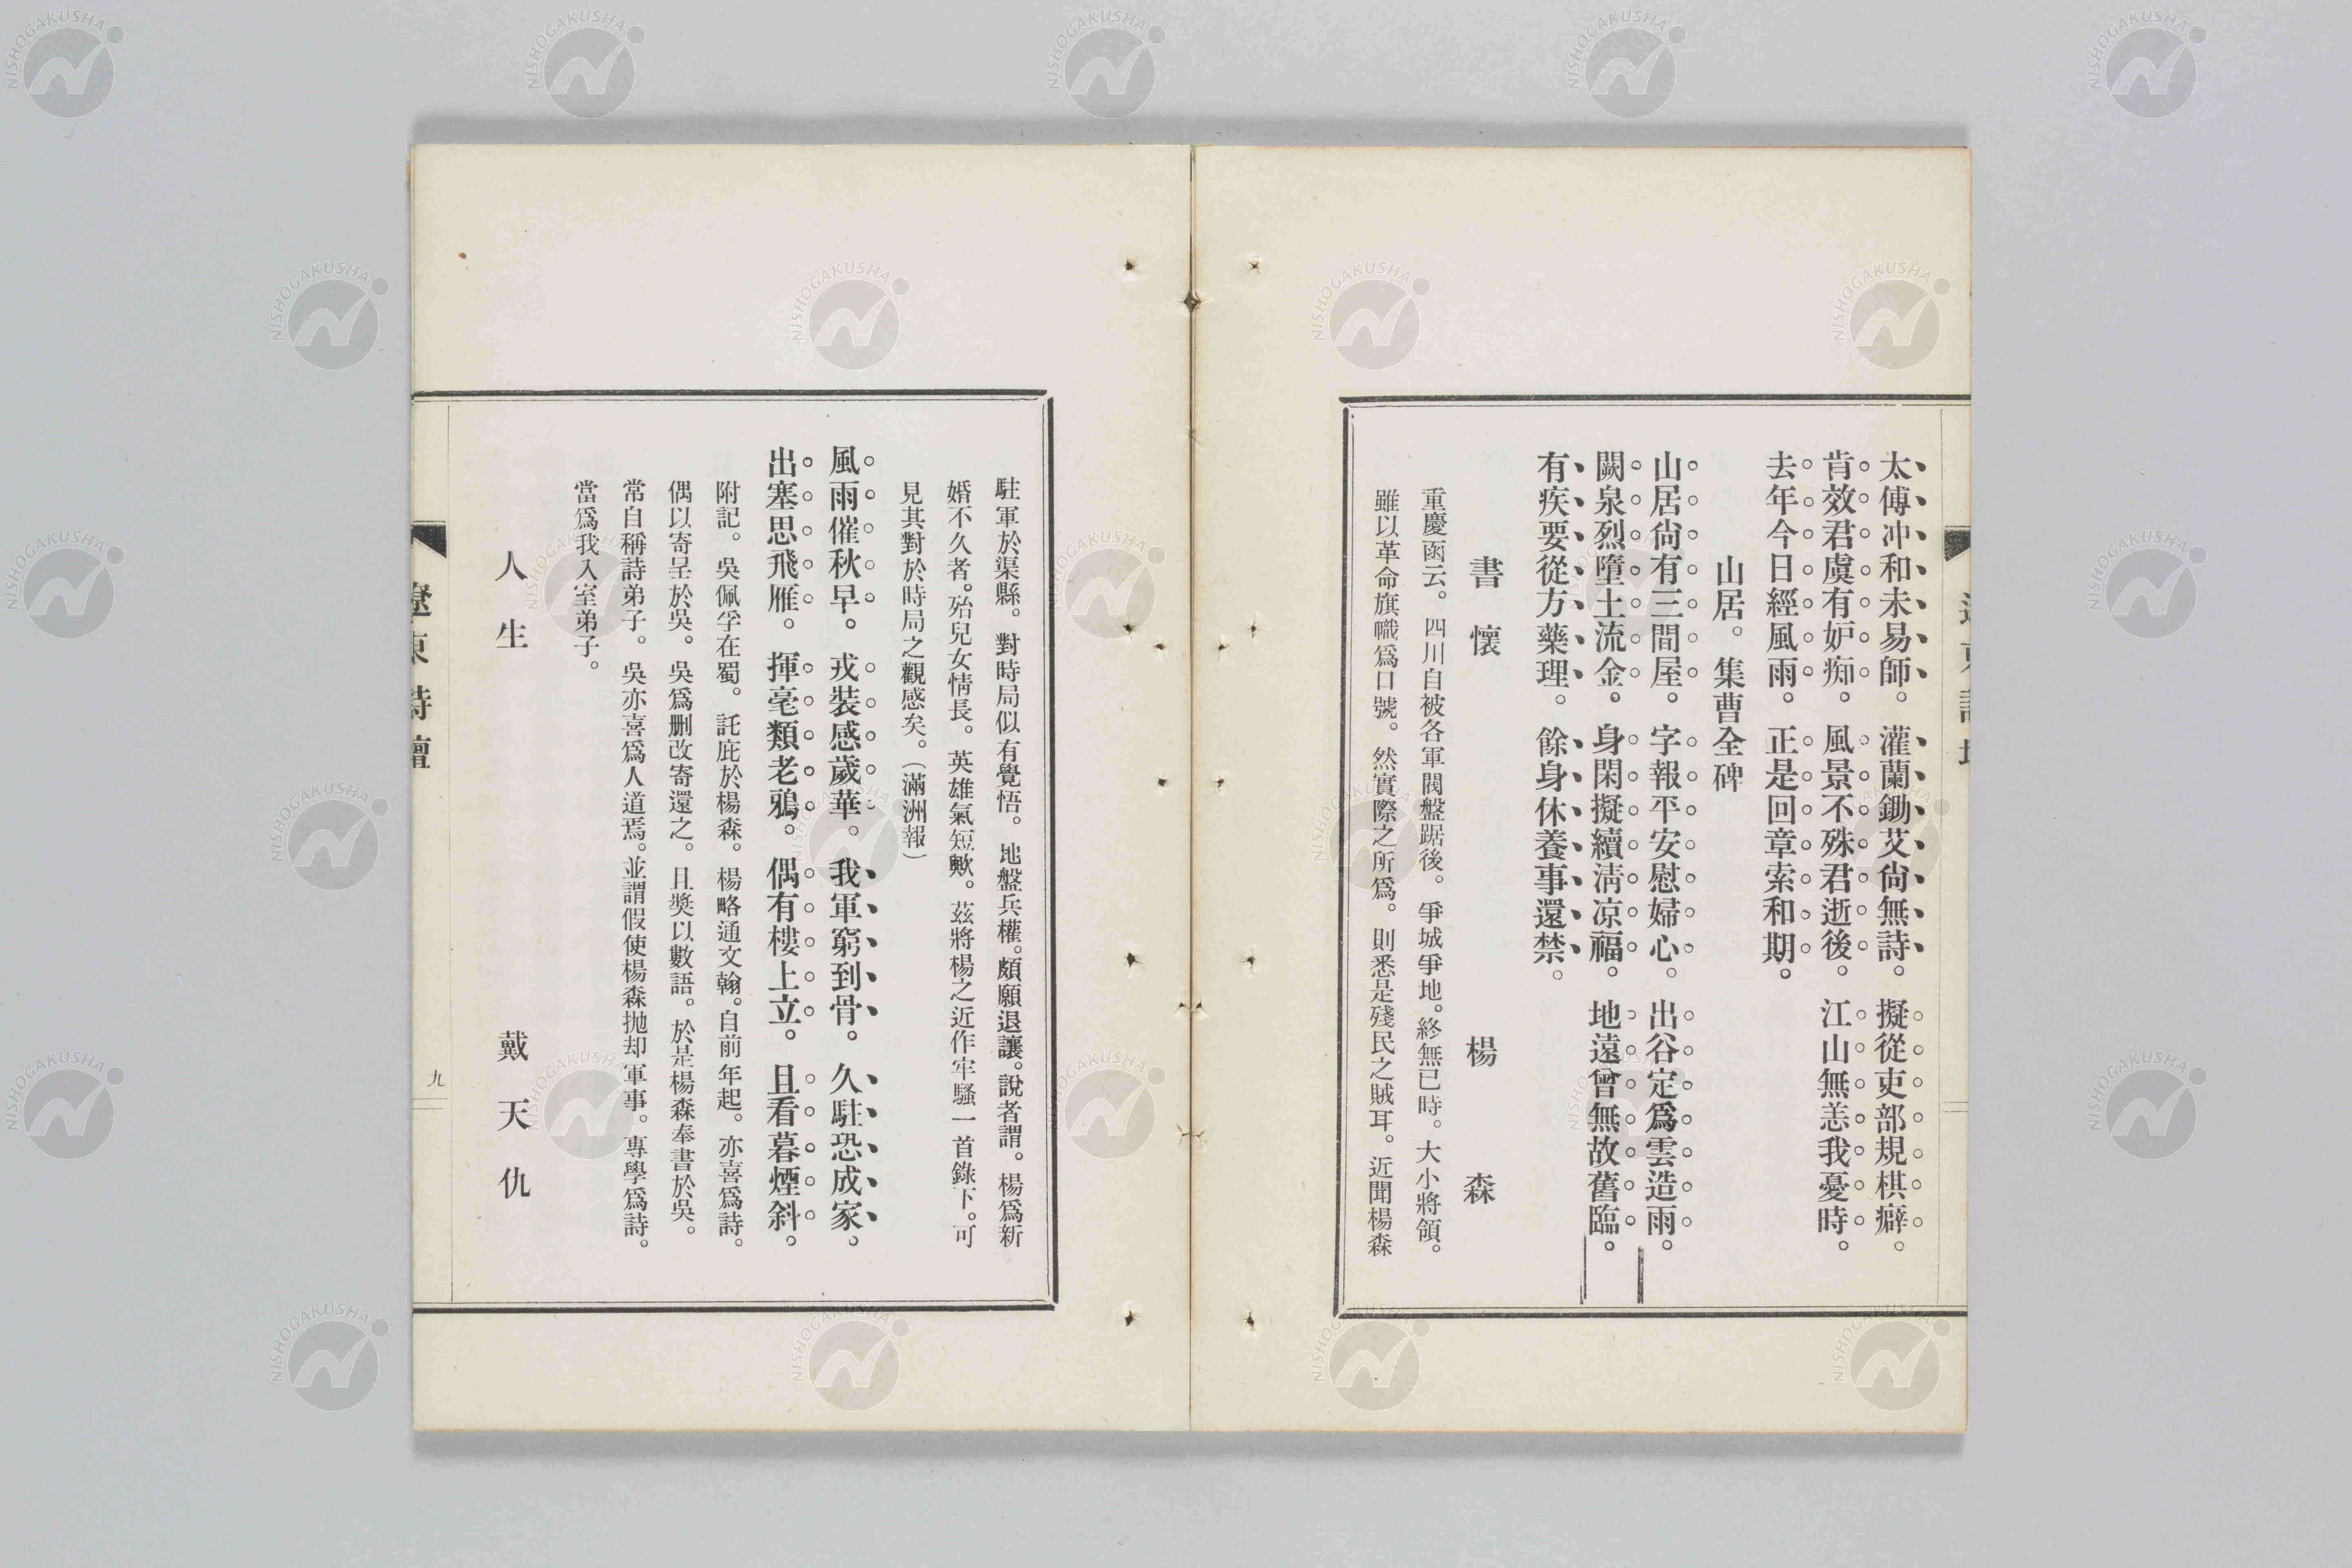 太傅冲和未易師。灌蘭鋤艾尙無詩。擬從吏部規棋癖。
肯效君虞有妒痴。風景不殊君逝後。江山無恙我憂時。
去年今日經風雨。正是回章索和期。
山居。集曹全碑
山居尙有三間屋。字報平安慰婦心。出谷定爲雲造雨。
闕泉烈墮土流金。身閑擬續淸凉福。地遠曾無故舊臨。
有疾要從方藥理。餘身休養事還禁。
書懷 楊森
重慶函云。四川自被各軍閥盤踞後。爭城爭地。終無已時。大小將領。
雖以革命旗幟爲口號。然實際之所爲。則悉是殘民之賊耳。近聞楊森
駐軍於渠縣。對時局似有覺悟。地盤兵權。頗願退讓。說者謂。楊爲新
婚不久者。殆兒女情長。英雄氣短歟。茲將楊之近作牢騷一首錄下。可
見其對於時局之觀感矣。(滿洲報)
風雨催秋早。戎裝感歲華。我軍窮到骨。久駐恐成家。
出塞思飛雁。揮毫類老鴉。偶有樓上立。且看暮煙斜。
附記。吳佩孚在蜀。託庇於楊森。楊略通文翰。自前年起。亦喜爲詩。
偶以寄呈於吳。吳爲删改寄還之。且獎以數語。於是楊森奉書於吳。
常自稱詩弟子。吳亦喜爲人道焉。並謂假使楊森拋却軍事。專學爲詩。
當爲我入室弟子。
人生 戴天仇
遼東詩壇
九
NISHOGAKUSHA